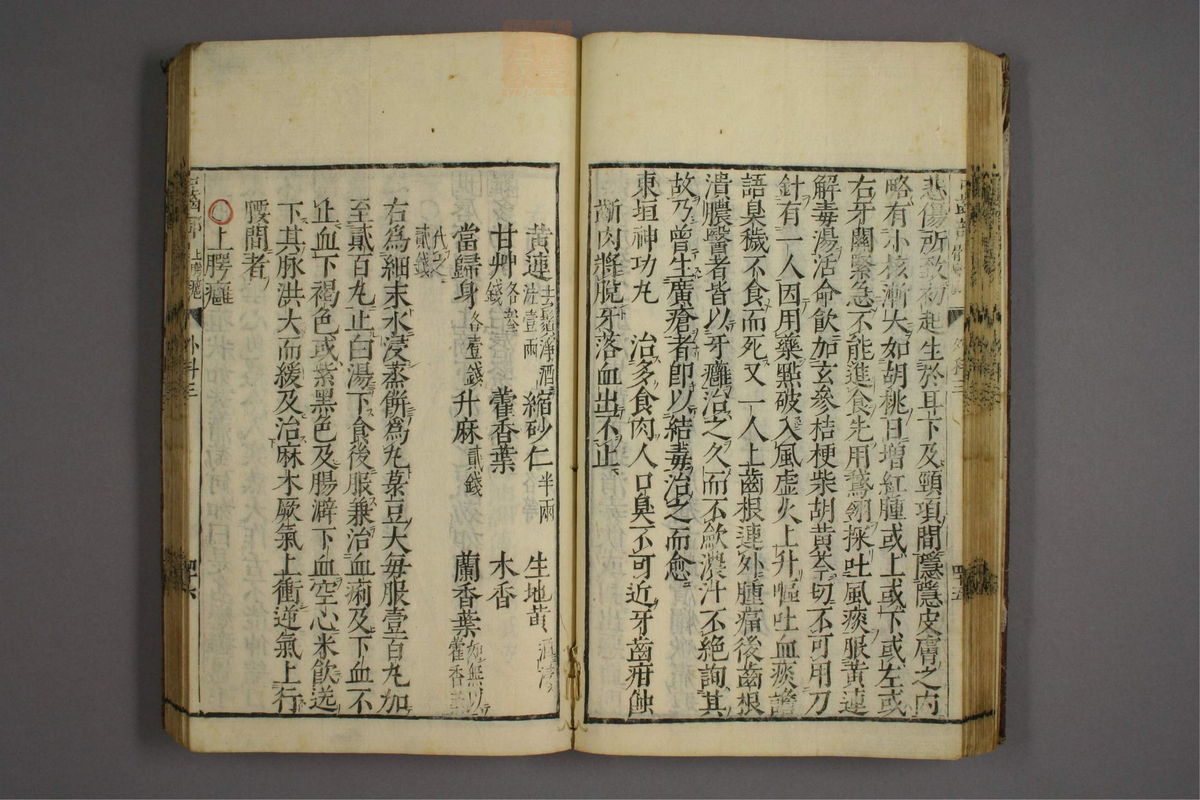 悲傷所致初起生於耳下及頸項間隱隱皮膚之內
略有小核漸大如胡桃日增紅腫或上或下或左或
右牙關緊急不能進食先用鵞翎探吐風痰服黃連
解毒湯活命飲加玄參桔梗柴胡黃芩切不可用刀
針有一人因用藥點破入風虛火上升嘔吐血痰譫
語臭穢不食而死又一人上齒根連外腫痛後齒根
潰膿醫者皆以牙癰治之久而不歛濃汁不絶詢其
故乃曾生廣瘡者即以結毒治之而愈
東垣神功丸 治多食肉人口臭不可近牙齒疳蝕
齗肉將脫牙落血出不止
黃連去鬚淨酒洗壹兩 縮砂仁半兩 生地黃酒浸
甘艸各叄錢 藿香葉 木香
當歸身各壹錢 升麻貳錢 蘭香葉如無以藿香葉
代之貳錢
右為細末水浸蒸餅為丸菉豆大每服壹百丸加
至貳百丸止白湯下食後服兼治血痢及下血不
止血下褐色或紫黑色及腸澼下血空心米飲送
下其脉洪大而緩及治麻木厥氣上衝逆氣上行
腰間者
上腭癰
外科三